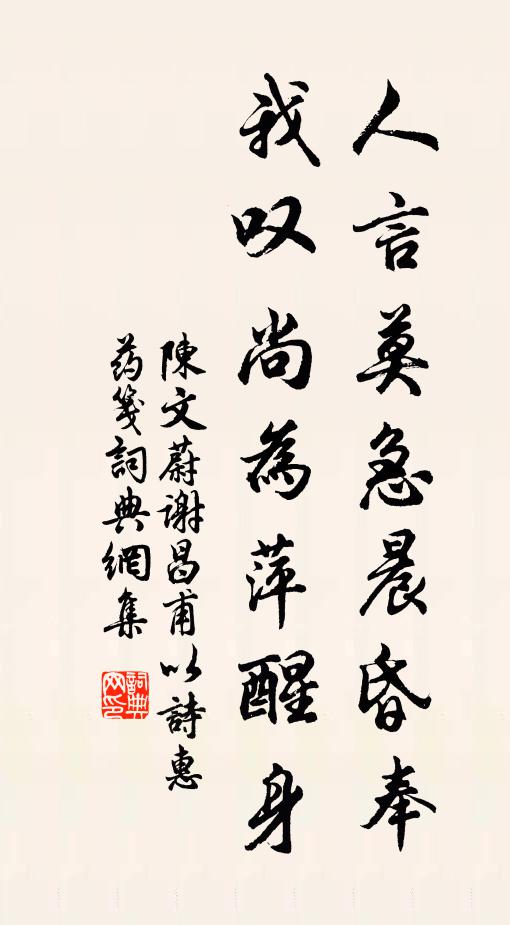 人言莫急晨昏奉
我叹尚為萍醒身
陳文蔚谢昌甫以詩惠
药笺詞典網集
詞典网印